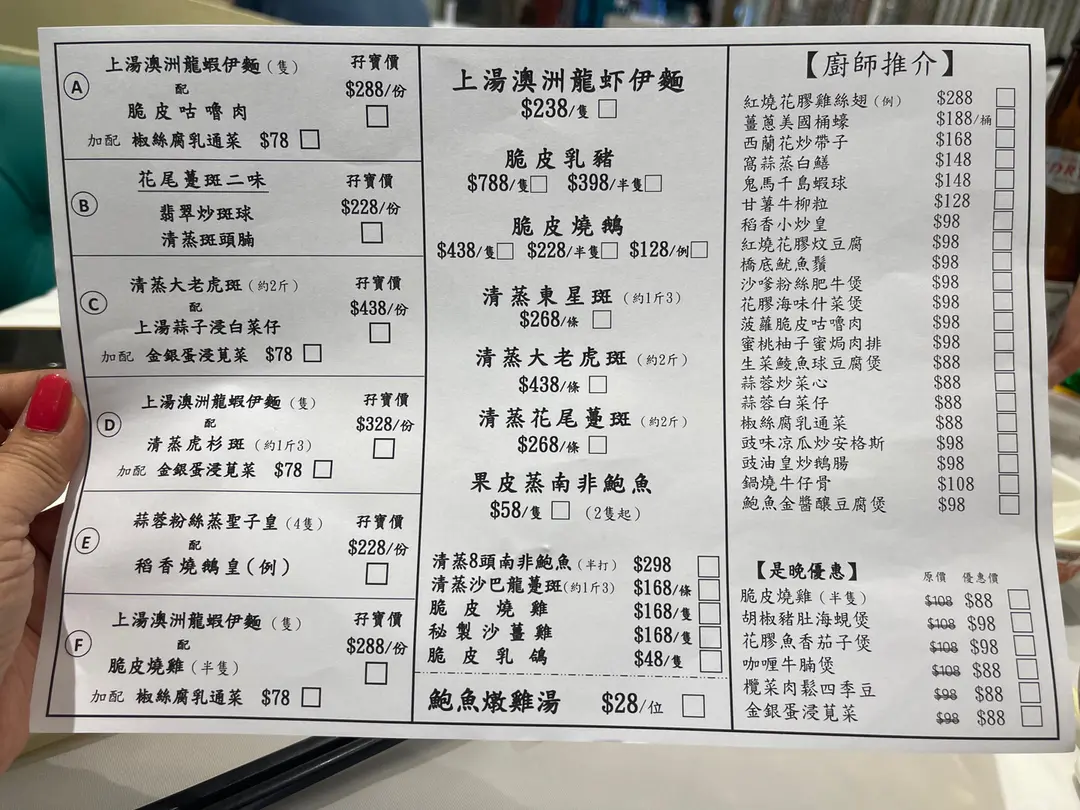 A
上湯澳洲龍蝦伊麵(隻) 孖寶價
配 $288/份
脆皮咕嚕肉
加配 椒絲腐乳通菜 $78
花尾躉斑二味 孖寶價
B
翡翠炒斑球 $228/份
清蒸斑頭腩
清蒸大老虎斑(約2斤) 孖寶價
C
配 $438/份
上湯蒜子浸白菜仔
加配 金銀蛋浸莧菜 $78
上湯澳洲龍蝦伊麵(隻) 孖寶價
D
配 $328/份
清蒸虎杉斑(約1斤3)
加配 金銀蛋浸莧菜 $78
蒜蓉粉絲蒸聖子皇(4隻) 孖寶價
E
配 $228/份
稻香燒鵝皇(例)
上湯澳洲龍蝦伊麵(隻) 孖寶價
F
配 $288/份
脆皮燒雞(半隻)
加配 椒絲腐乳通菜 $78
上湯澳洲龍虾伊麵
$238/隻
脆皮乳豬
$788/隻 $398/半隻
脆皮燒鵝
$438/隻 $228/半隻 $128/例
清蒸東星斑(約1斤3)
$268/條
清蒸大老虎斑(約2斤)
$438/條
清蒸花尾躉斑(約2斤)
$268/條
果皮蒸南非鮑魚
$58/隻 (2隻起)
清蒸8頭南非鮑魚(半打) $298
清蒸沙巴龍躉斑(約1斤3) $168/條
脆皮燒雞 $168/隻
秘製沙薑雞 $168/隻
脆皮乳鴿 $48/隻
鮑魚燉雞湯 $28/位
【廚師推介】
紅燒花膠雞絲翅(例) $288
薑蔥美國桶蠔 $188/桶
西蘭花炒帶子 $168
窩蒜蒸白鱔 $148
鬼馬千島蝦球 $148
甘薯牛柳粒 $128
稻香小炒皇 $98
紅燒花膠炆豆腐 $98
橋底魷魚鬚 $98
沙嗲粉絲肥牛煲 $98
花膠海味什菜煲 $98
菠蘿脆皮咕嚕肉 $98
蜜桃柚子蜜焗肉排 $98
生菜鯪魚球豆腐煲 $88
蒜蓉炒菜心 $88
蒜蓉白菜仔 $88
椒絲腐乳通菜 $88
豉味凉瓜炒安格斯 $98
豉油皇炒鵝腸 $98
鍋燒牛仔骨 $108
鮑魚金醬釀豆腐煲 $98
【是晚優惠】 原價 優惠價
脆皮燒雞(半隻) $108 $88
胡椒豬肚海蜆煲 $108 $98
花膠魚香茄子煲 $108 $98
咖喱牛腩煲 $108 $88
欖菜肉鬆四季豆 $98 $88
金銀蛋浸莧菜 $98 $88